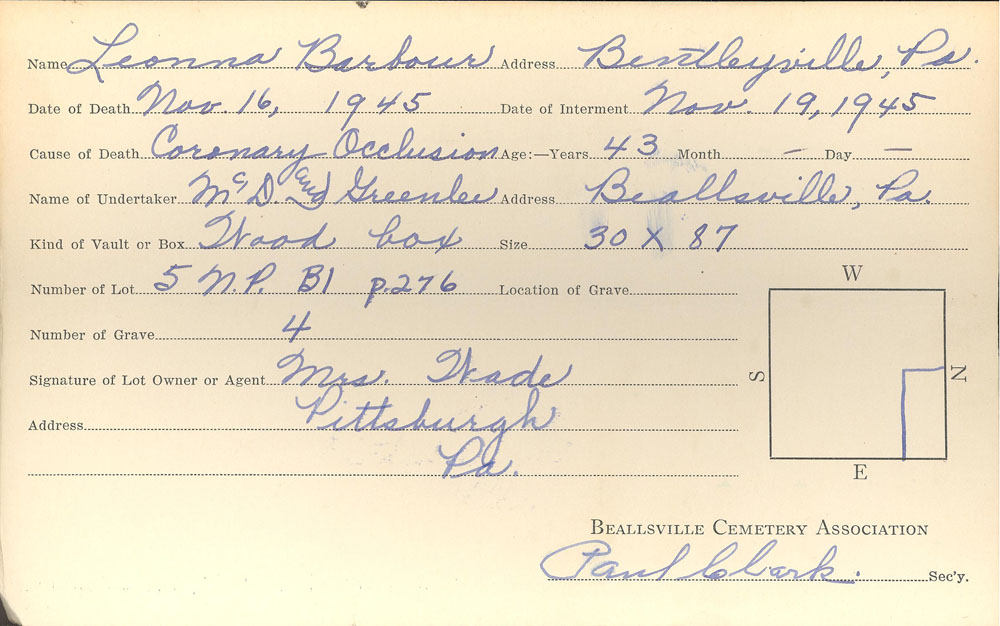 Name Leonna Barbour Address Bentleyville, Pa.
Date of Death Nov. 16, 1945 Date of Interment Nov. 19, 1945
Cause of Death Coronary Occlusion Age:—Years 43 Month – Day –
Name of Undertaker McD. and Greenlee Address Beallsville, Pa.
Kind of Vault or Box Wood box Size 30 X 87
Number of Lot 5 N.P. B1 p.276 Location of Grave
W
Number of Grave 4
Signature of Lot Owner or Agent Mrs. Wade
S N
Address Pittsburgh
Pa.
E
BEALLSVILLE CEMETERY ASSOCIATION
Paul Clark. Sec'y.